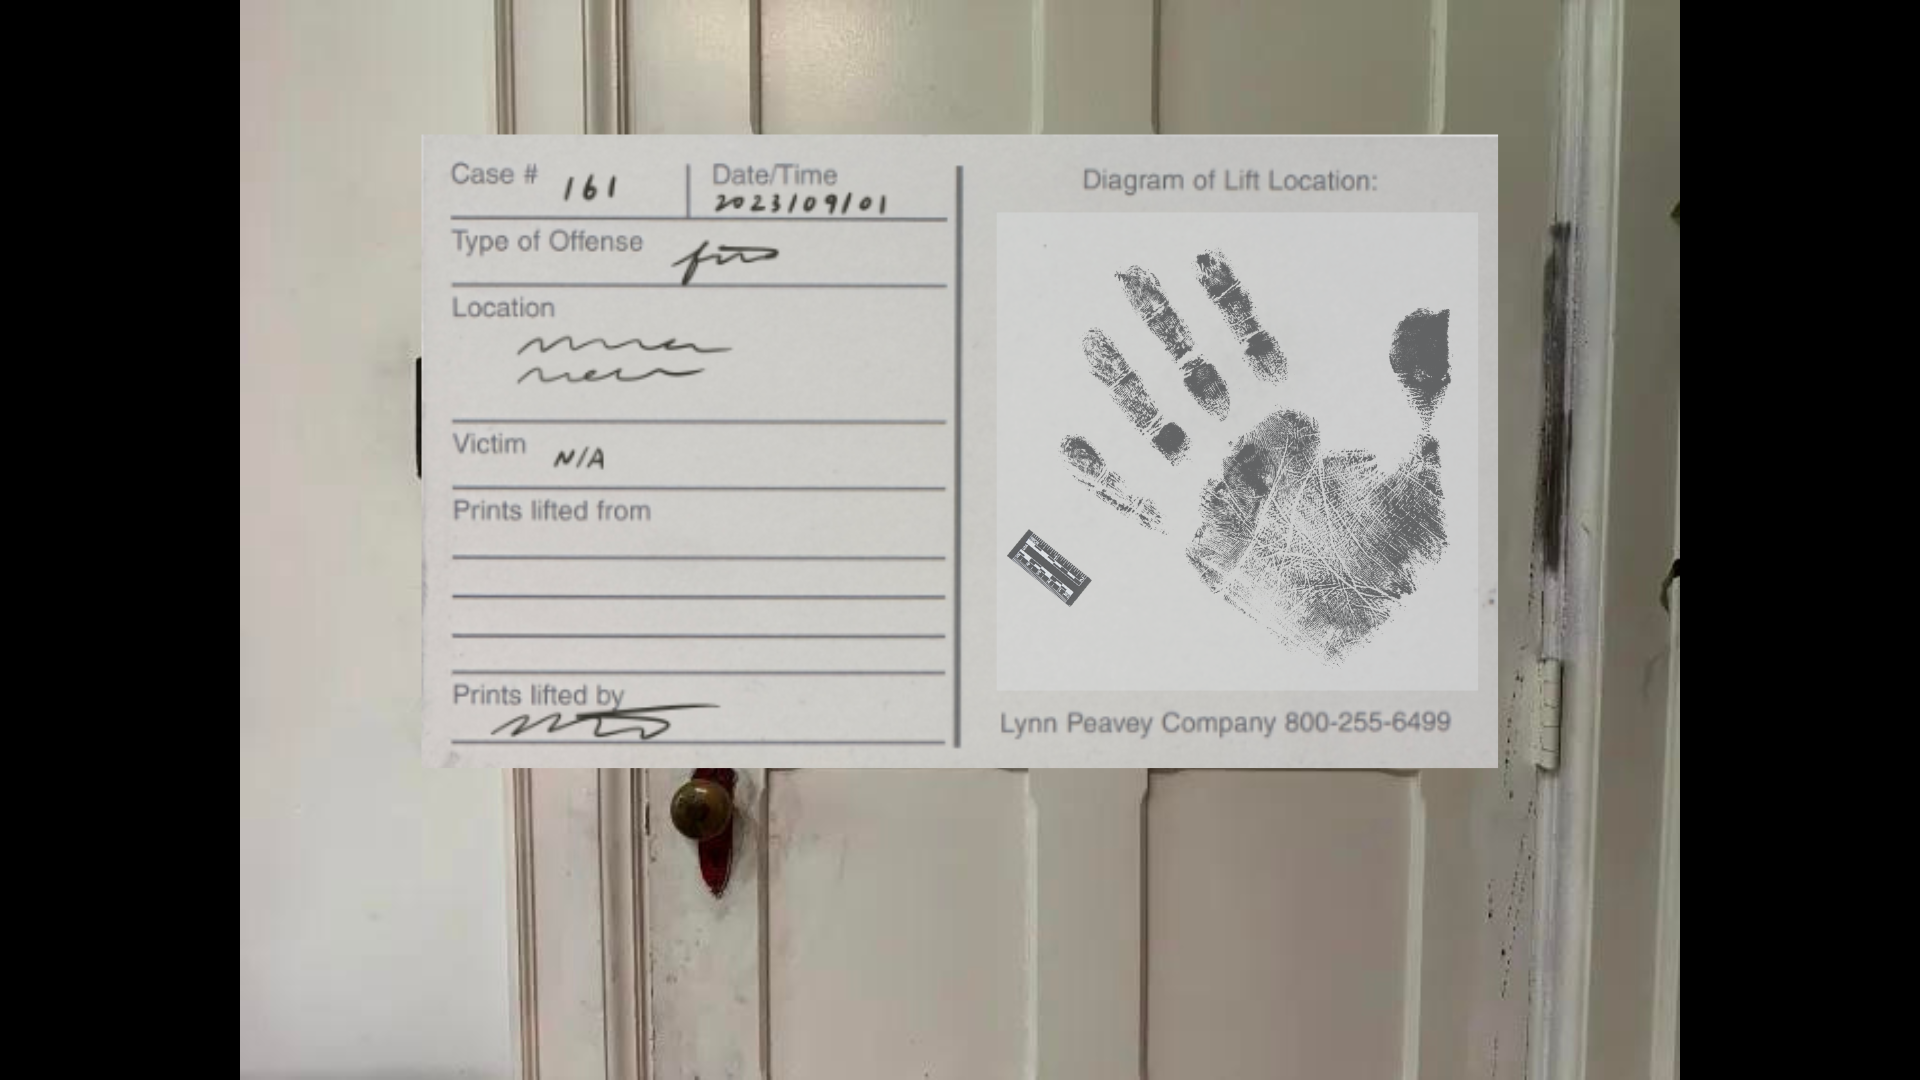 Case # 161
Date/Time
2023/09/01
Type of Offense
Location
Victim N/A
Prints lifted from
Prints lifted by
Diagram of Lift Location:
Lynn Peavey Company 800-255-6499